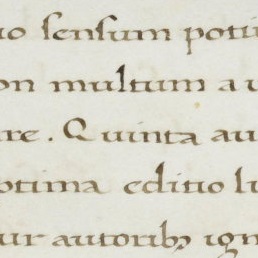 uo sensum poti
on multum a u
are. Quinta au
ptima editio lu
ur autorib; ign